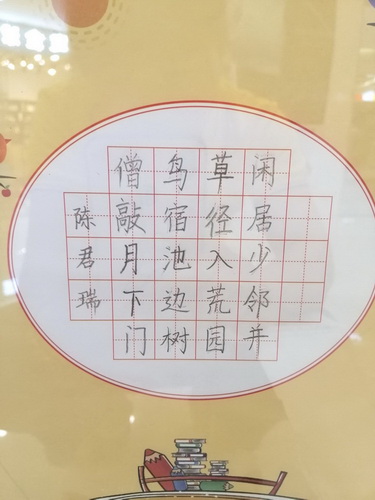 闲居少邻并
草径入荒园
鸟宿池边树
僧敲月下门
陈君瑞